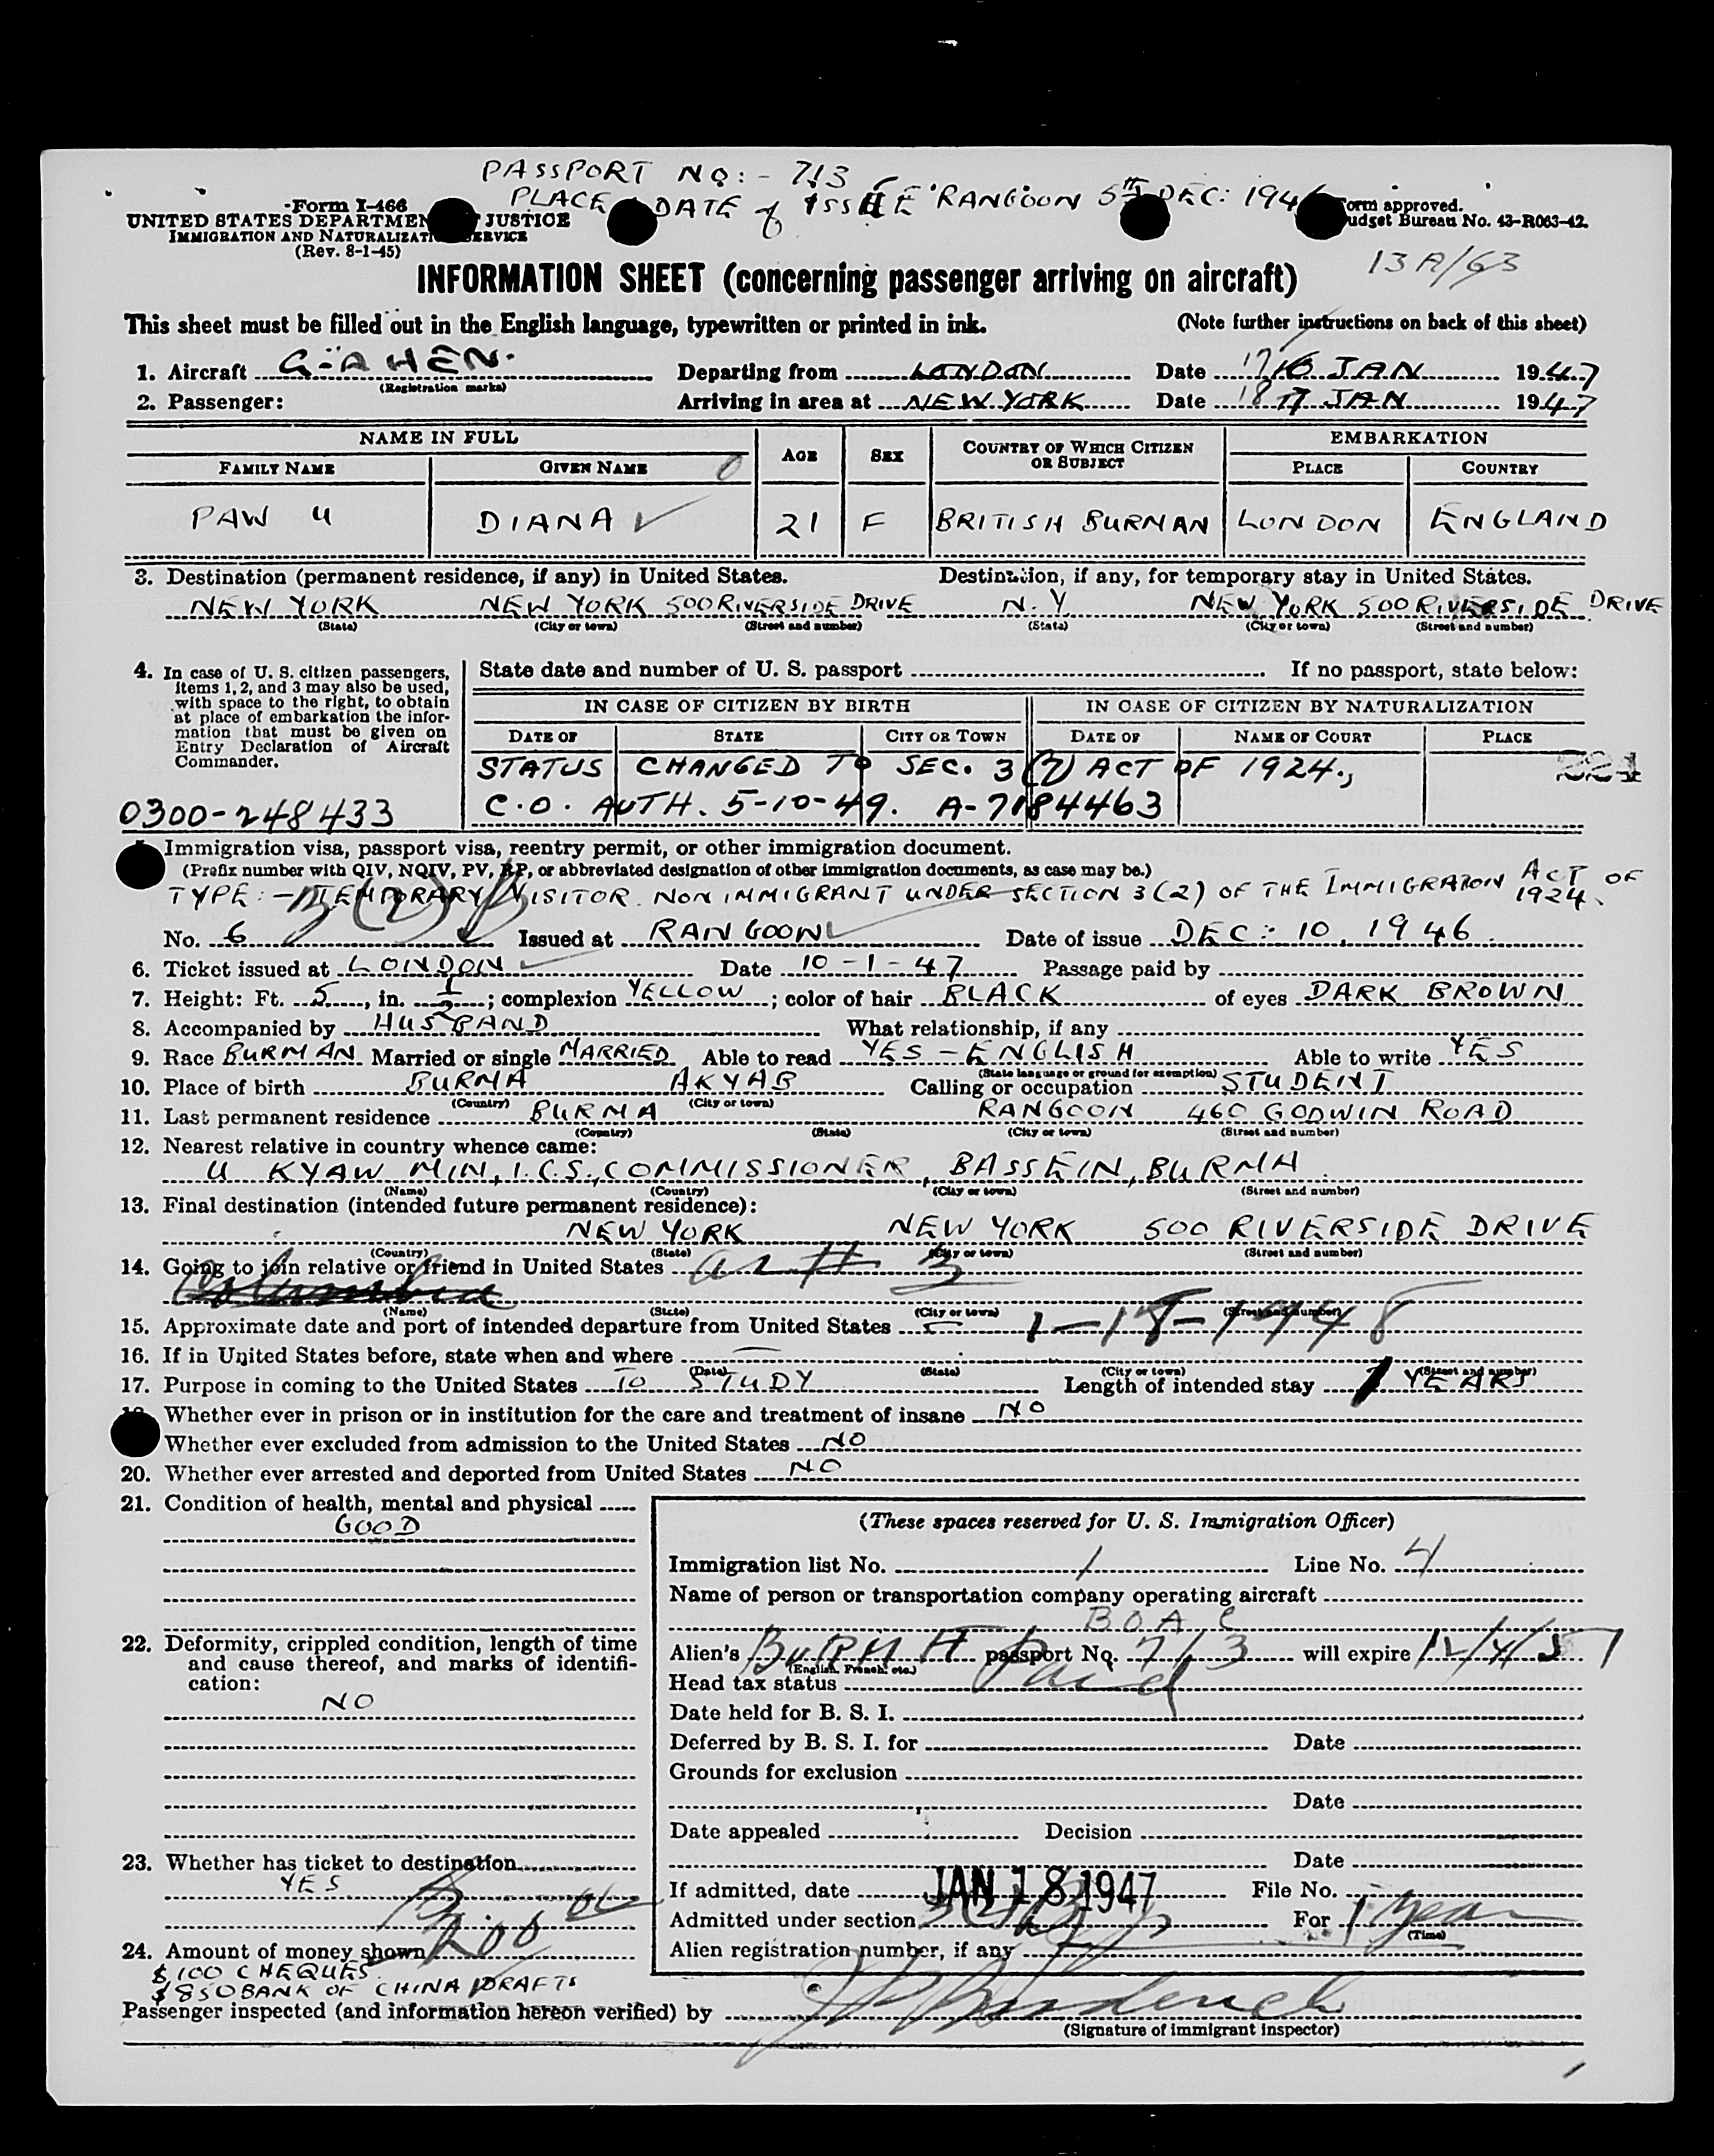 PASSPORT NO:- 713
PLACE & DATE of ISSUE RANGOON 5TH DEC: 1946
Form I-466
UNITED STATES DEPARTMENT OF JUSTICE
IMMIGRATION AND NATURALIZATION SERVICE
(Rev. 8-1-45)
Form approved.
Budget Bureau No. 43-R063-42.
13A/63
INFORMATION SHEET (concerning passenger arriving on aircraft)
This sheet must be filled out in the English language, typewritten or printed in ink. (Note further instructions on back of this sheet)
1. Aircraft G-AHEN. Departing from LONDON Date 17 16 JAN 1947
(Registration marks)
2. Passenger: Arriving in area at NEW YORK Date 18 17 JAN 1947
NAME IN FULL AGE SEX COUNTRY OF WHICH CITIZEN OR SUBJECT EMBARKATION
FAMILY NAME GIVEN NAME PLACE COUNTRY
PAW U DIANA 21 F BRITISH BURMAN LONDON ENGLAND
3. Destination (permanent residence, if any) in United States. Destination, if any, for temporary stay in United States.
NEW YORK NEW YORK 500 RIVERSIDE DRIVE N.Y NEW YORK 500 RIVERSIDE DRIVE
(State) (City or town) (Street and number) (State) (City or town) (Street and number)
4. In case of U. S. citizen passengers, items 1, 2, and 3 may also be used, with space to the right, to obtain at place of embarkation the information that must be given on Entry Declaration of Aircraft Commander.
State date and number of U. S. passport If no passport, state below:
IN CASE OF CITIZEN BY BIRTH IN CASE OF CITIZEN BY NATURALIZATION
DATE OF STATE CITY OR TOWN DATE OF NAME OF COURT PLACE
STATUS CHANGED TO SEC. 3(7) ACT OF 1924., 221
C.O. AUTH. 5-10-49. A-7184463
0300-248433
Immigration visa, passport visa, reentry permit, or other immigration document.
(Prefix number with QIV, NQIV, PV, RP, or abbreviated designation of other immigration documents, as case may be.)
TYPE:- TEMPORARY VISITOR. NON IMMIGRANT UNDER SECTION 3(2) OF THE IMMIGRATION ACT OF 1924.
No. 6 Issued at RANGOON Date of issue DEC: 10, 1946
6. Ticket issued at LONDON Date 10-1-47 Passage paid by
7. Height: Ft. 5, in. 1/2; complexion YELLOW; color of hair BLACK of eyes DARK BROWN
8. Accompanied by HUSBAND What relationship, if any
9. Race BURMAN Married or single MARRIED Able to read YES - ENGLISH Able to write YES
(State language or ground for exemption)
10. Place of birth BURMA AKYAB Calling or occupation STUDENT
(Country) (City or town)
11. Last permanent residence BURMA RANGOON 460 GODWIN ROAD
(Country) (State) (City or town) (Street and number)
12. Nearest relative in country whence came:
U KYAW MIN, I.C.S., COMMISSIONER, BASSEIN, BURMA.
(Name) (Country) (City or town) (Street and number)
13. Final destination (intended future permanent residence):
NEW YORK NEW YORK 500 RIVERSIDE DRIVE
(Country) (State) (City or town) (Street and number)
14. Going to join relative or friend in United States as # 3
(Name) (State) (City or town) (Street and number)
15. Approximate date and port of intended departure from United States 1-18-1948
16. If in United States before, state when and where
(Date) (State) (City or town) (Street and number)
17. Purpose in coming to the United States TO STUDY Length of intended stay 1 YEARS
Whether ever in prison or in institution for the care and treatment of insane NO
Whether ever excluded from admission to the United States NO
20. Whether ever arrested and deported from United States NO
21. Condition of health, mental and physical
GOOD
22. Deformity, crippled condition, length of time and cause thereof, and marks of identification:
NO
23. Whether has ticket to destination
YES
24. Amount of money shown 200
$100 CHEQUES
$850 BANK OF CHINA DRAFTS
(These spaces reserved for U. S. Immigration Officer)
Immigration list No. 1 Line No. 4
Name of person or transportation company operating aircraft
BOAC
Alien's BURMA passport No. 713 will expire 12/4/51
(English, French, etc.)
Head tax status Paid
Date held for B. S. I.
Deferred by B. S. I. for Date
Grounds for exclusion
Date
Date appealed Decision
Date
If admitted, date JAN 18 1947 File No.
Admitted under section 3(2) For 1 year
(Time)
Alien registration number, if any
Passenger inspected (and information hereon verified) by
(Signature of immigrant inspector)